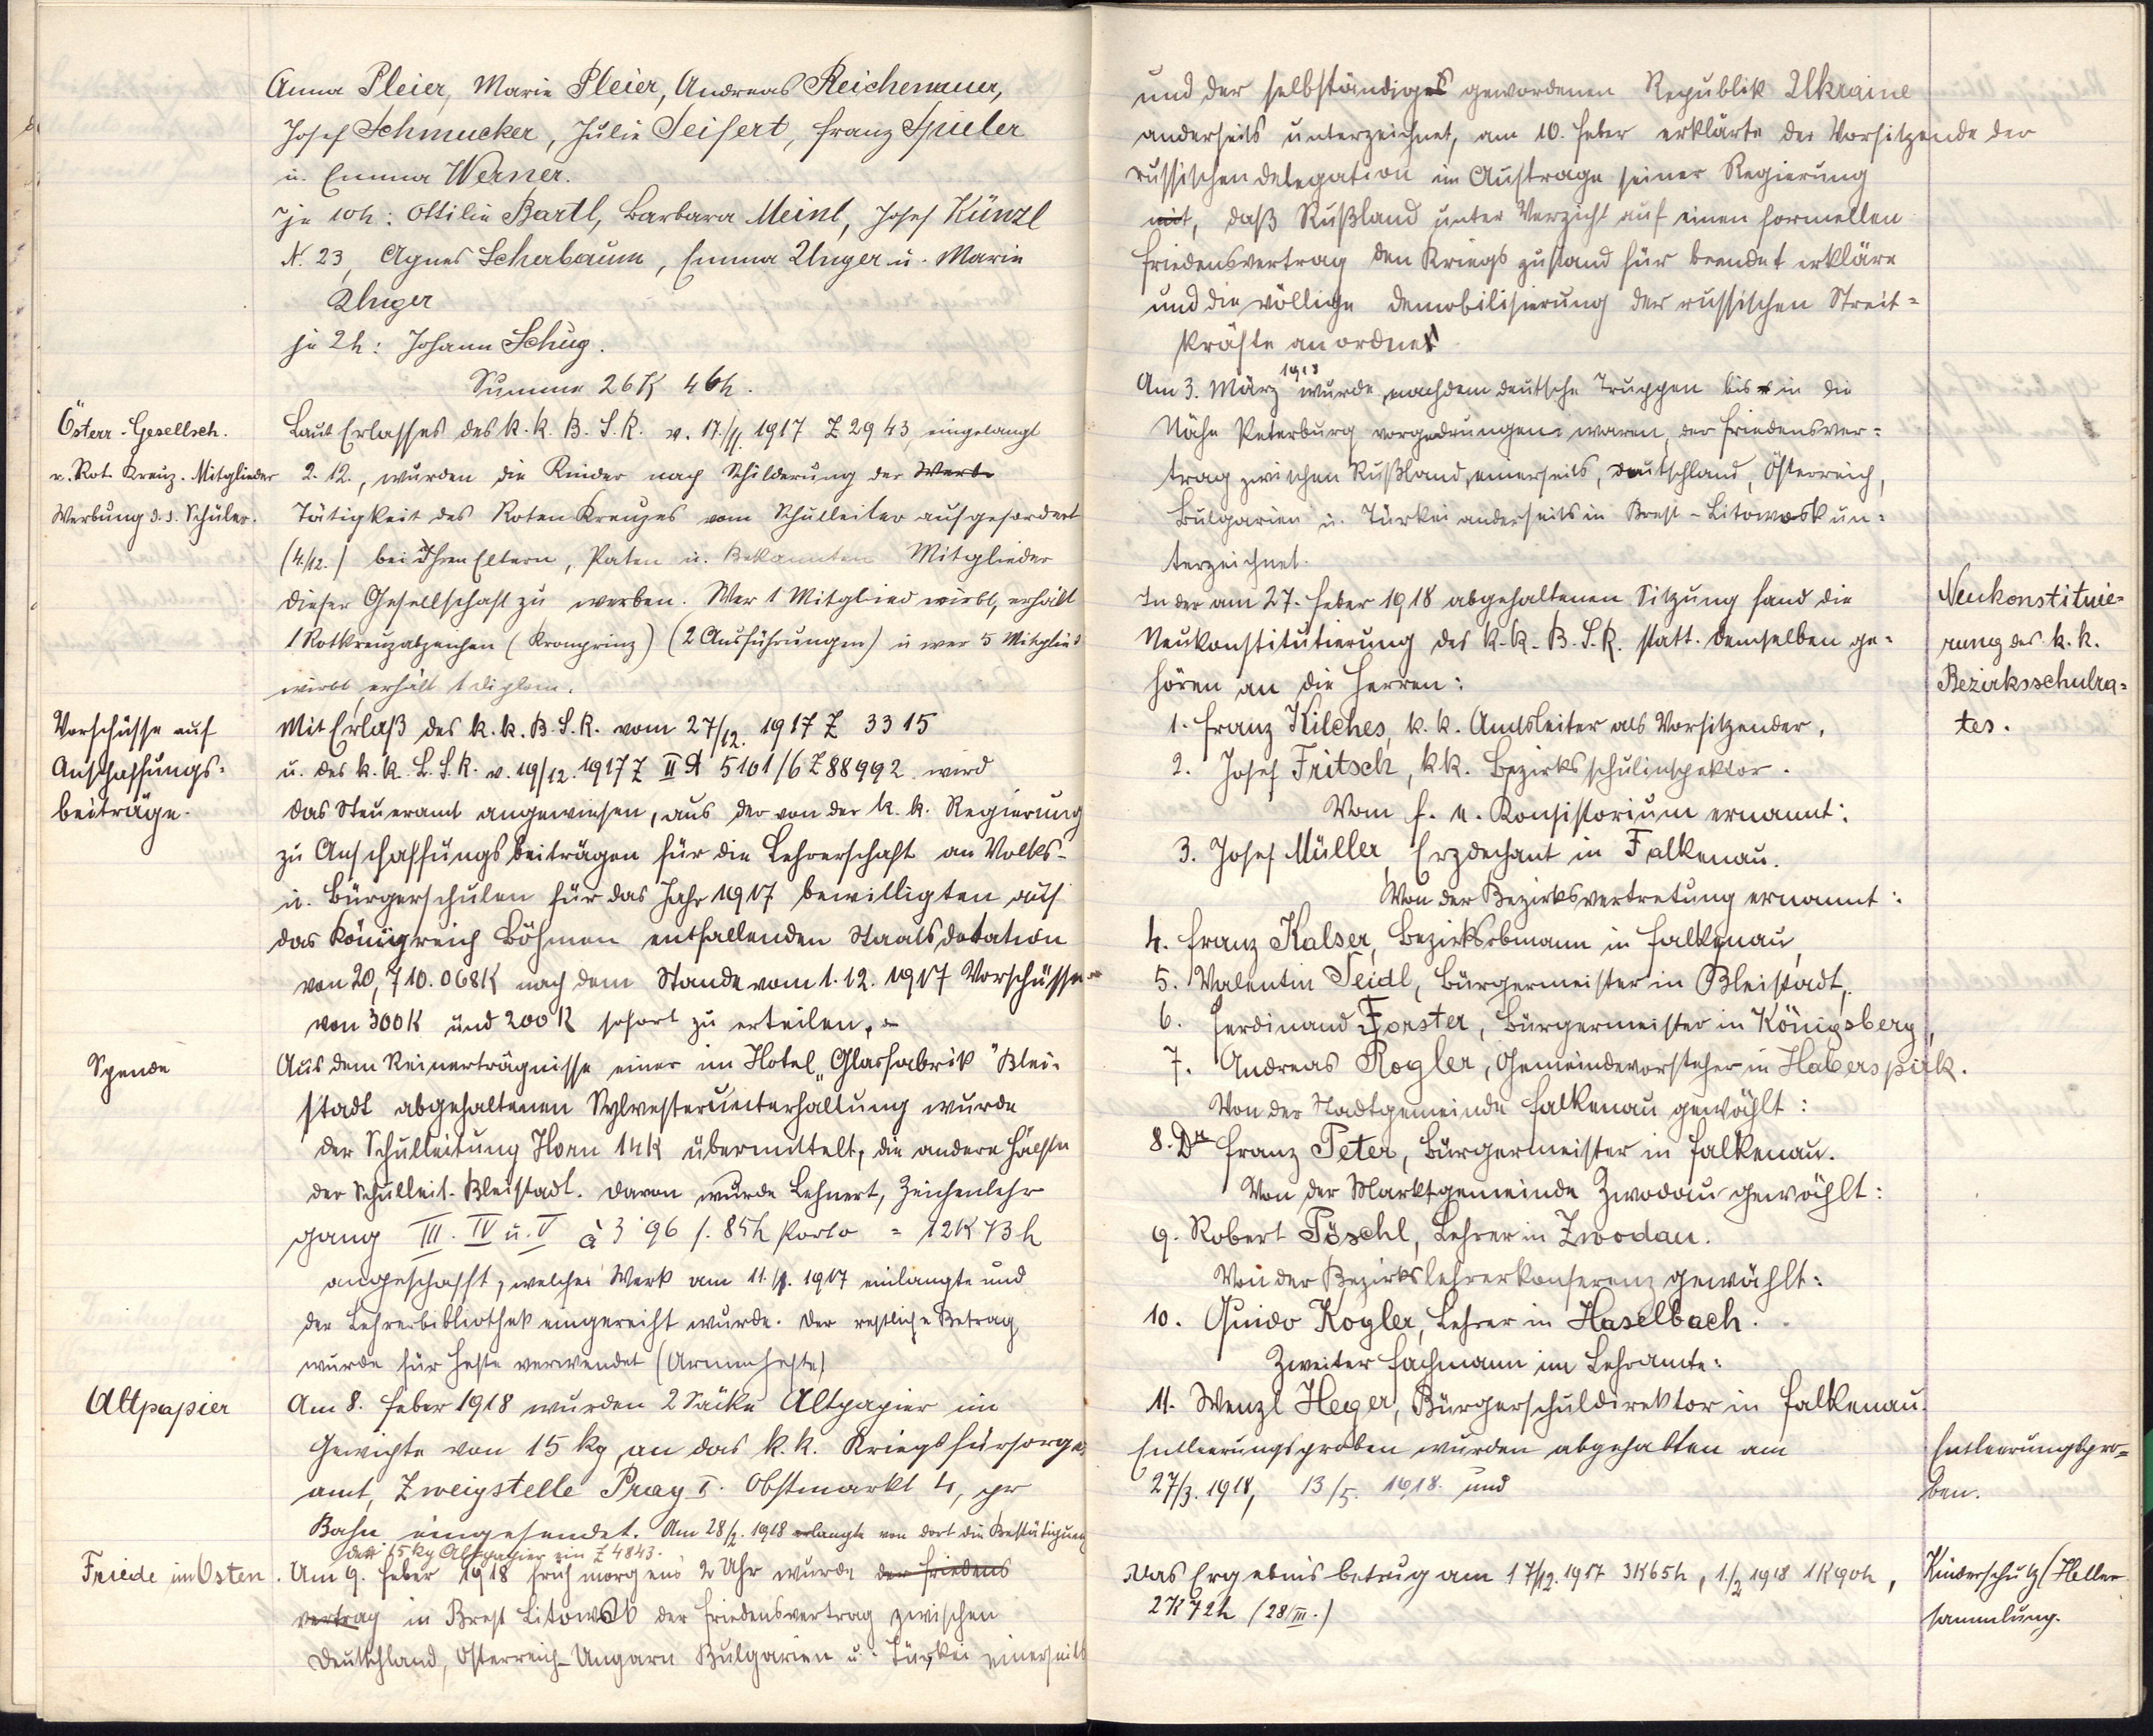 Anna Pleier, Marie Pleier, Andreas Reichenauer,
Josef Schmucker, Julie Seifert, Franz Spieler
u. Emma Werner.
je 10h: Ottilie Bartl, Barbara Meinl, Josef Künzl
N. 23, Agnes Scherbaum, Emma Unger u. Marie
Unger
je 2h: Johann Schug.
Summe 26K 46h.
Österr.-Gesellsch.
v. Rot. Kreuz. Mitglieder
Werbung d. d. Schüler.
Laut Erlasses des k.k. B.S.R. v. 17./11. 1917 Z 2943, eingelangt
2.12., wurden die Kinder nach Schilderung der Werbe
Tätigkeit des Roten Kreuzes vom Schulleiter aufgefordert
(4./12.) bei Ihren Eltern, Paten u. Bekannten Mitglieder
dieser Gesellschaft zu werben. Wer 1 Mitglied wirbt, erhält
1 Rotkreuzabzeichen (Kronprinz) (2 Ausführungen) u wer 5 Mitglied
wirbt, erhält 1 Diplom.
Vorschüsse auf
Anschaffungs-
beiträge.
Mit Erlaß des k.k. B.S.R. vom 27/12. 1917 Z 3315
u. des k.k. L.S.R. v. 19/12. 1917 Z II A 5101/6 Z 88992 wird
das Steueramt angewiesen, aus der von der k.k. Regierung
zu Anschaffungsbeiträgen für die Lehrerschaft an Volks-
u. Bürgerschulen für das Jahr 1917 bewilligten auf
das Königreich Böhmen entfallenden Staatsdotation
von 20,710.068K nach dem Stande vom 1.12.1917 Vorschüsse
von 300K und 200K sofort zu erteilen.
Spende
Aus dem Reinerträgnisse einer im Hotel „Glasfabrik" Blei-
stadt abgehaltenen Sylvesterunterhaltung wurde
der Schulleitung Horn 14K übermittelt, die andere Hälfte
der Schulleit. Bleistadt. Davon wurde Lehnert, Zeichenlehr
gang III. IV u. V à 3˙96 /. 85h Porto = 12K 73h
angeschafft, welches Werk am 11./1. 1917 einlangte und
der Lehrerbibliothek eingereiht wurde. Der restliche Betrag
wurde für Hefte verwendet (Armenhefte)
Altpapier
Am 8. Feber 1918 wurden 2 Säcke Altpapier im
Gewichte von 15 kg an das k.k. Kriegsfürsorge-
amt, Zweigstelle Prag I. Obstmarkt 4, pr
Bahn eingesendet. Am 28/2. 1918 erlangte von dort die Bestätigung
der 15 kg Altpapier ein Z 4843.
Friede im Osten.
Am 9. Feber 1918 früh morgens 2 Uhr wurde der Friedens
vertrag in Brest Litowsk der Friedensvertrag zwischen
Deutschland, Österreich-Ungarn Bulgarien u. Türkei einerseits
und der selbständiges gewordenen Republik Ukraine
anderseits unterzeichnet, am 10. Feber erklärte der Vorsitzende der
russischen Delegation im Auftrage seiner Regierung
mit, daß Rußland unter Verzicht auf einen formellen
Friedensvertrag den Kriegszustand für beendet erkläre
und die völlige Demobilisierung der russischen Streit-
kräfte anordnet
Am 3. März 1918 wurde, nachdem deutsche Truppen bis in die
Nähe Peterburg vorgedrungen waren, der Friedensver-
trag zwischen Rußland, einerseits, Deutschland, Österreich,
Bulgarien u. Türkei anderseits in Brest-Litowosk un-
terzeichnet.
In der am 27. Feber 1918 abgehaltenen Sitzung fand die
Neukonstitutierung des k.k. B.S.R. statt. Demselben ge-
hören an die Herren:
Neukonstituie-
rung des k.k.
Bezirksschulra-
tes.
1. Franz Kilches, k.k. Amtsleiter als Vorsitzender,
2. Josef Fritsch, kk. Bezirksschulinspektor.
Vom f. e. Konsistorium ernannt:
3. Josef Müller, Erzdechant in Falkenau.
Von der Bezirksvertretung ernannt:
4. Franz Kalser, Bezirksobmann in Falkenau,
5. Valentin Seidl, Bürgermeister in Bleistadt,
6. Ferdinand Forster, Bürgermeister in Königsberg,
7. Andreas Rogler, Gemeindevorsteher in Haberspirk.
Von der Stadtgemeinde Falkenau gewählt:
8. Dr Franz Peter, Bürgermeister in Falkenau.
Von der Marktgemeinde Zwodau gewählt:
9. Robert Pöschl, Lehrer in Zwodau.
Von der Bezirkslehrerkonferenz gewählt:
10. Guido Kogler, Lehrer in Haselbach.
Zweiter Fachmann im Lehramte:
11. Wenzl Heger, Bürgerschuldirektor in Falkenau.
Entleerungsproben wurden abgehalten am
27/3. 1918, 13/5. 1918. und
Entleerungspro-
ben.
Das Ergebnis betrug am 17/12. 1917 3K65h, 1./2 1918 1K90h,
2K72h (28/III.)
Kinderschutz (Heller
sammlung.